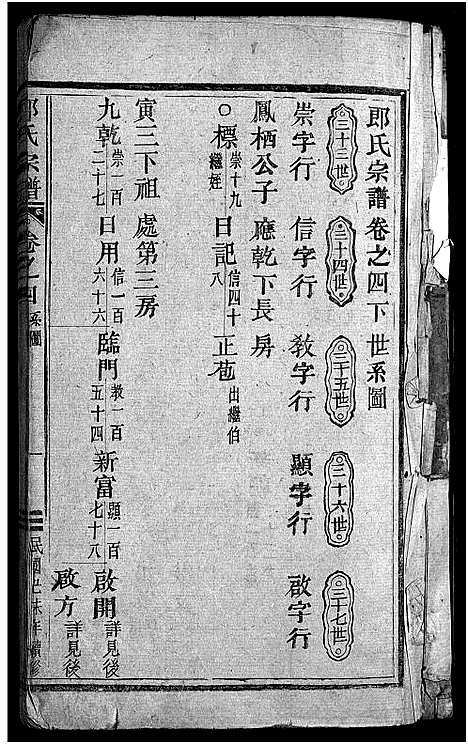 郎氏宗譜卷之四下世系圖
三十三世 三十四世 三十五世 三十六世 三十七世
崇字行 信字行 敎字行 顯字行 啟字行
鳳栖公子應乾下長房
○標 崇十九 繼姪 日記 信四十八 正苞 出繼伯
寅三下祖處第三房
九乾 崇一百二十七 日用 信一百六十六 臨門 敎一百五十四 新富 顯一百七十八 啟開 詳見後
啟方 詳見後
郎氏宗譜 卷之四 系圖 一 民國己未年續修